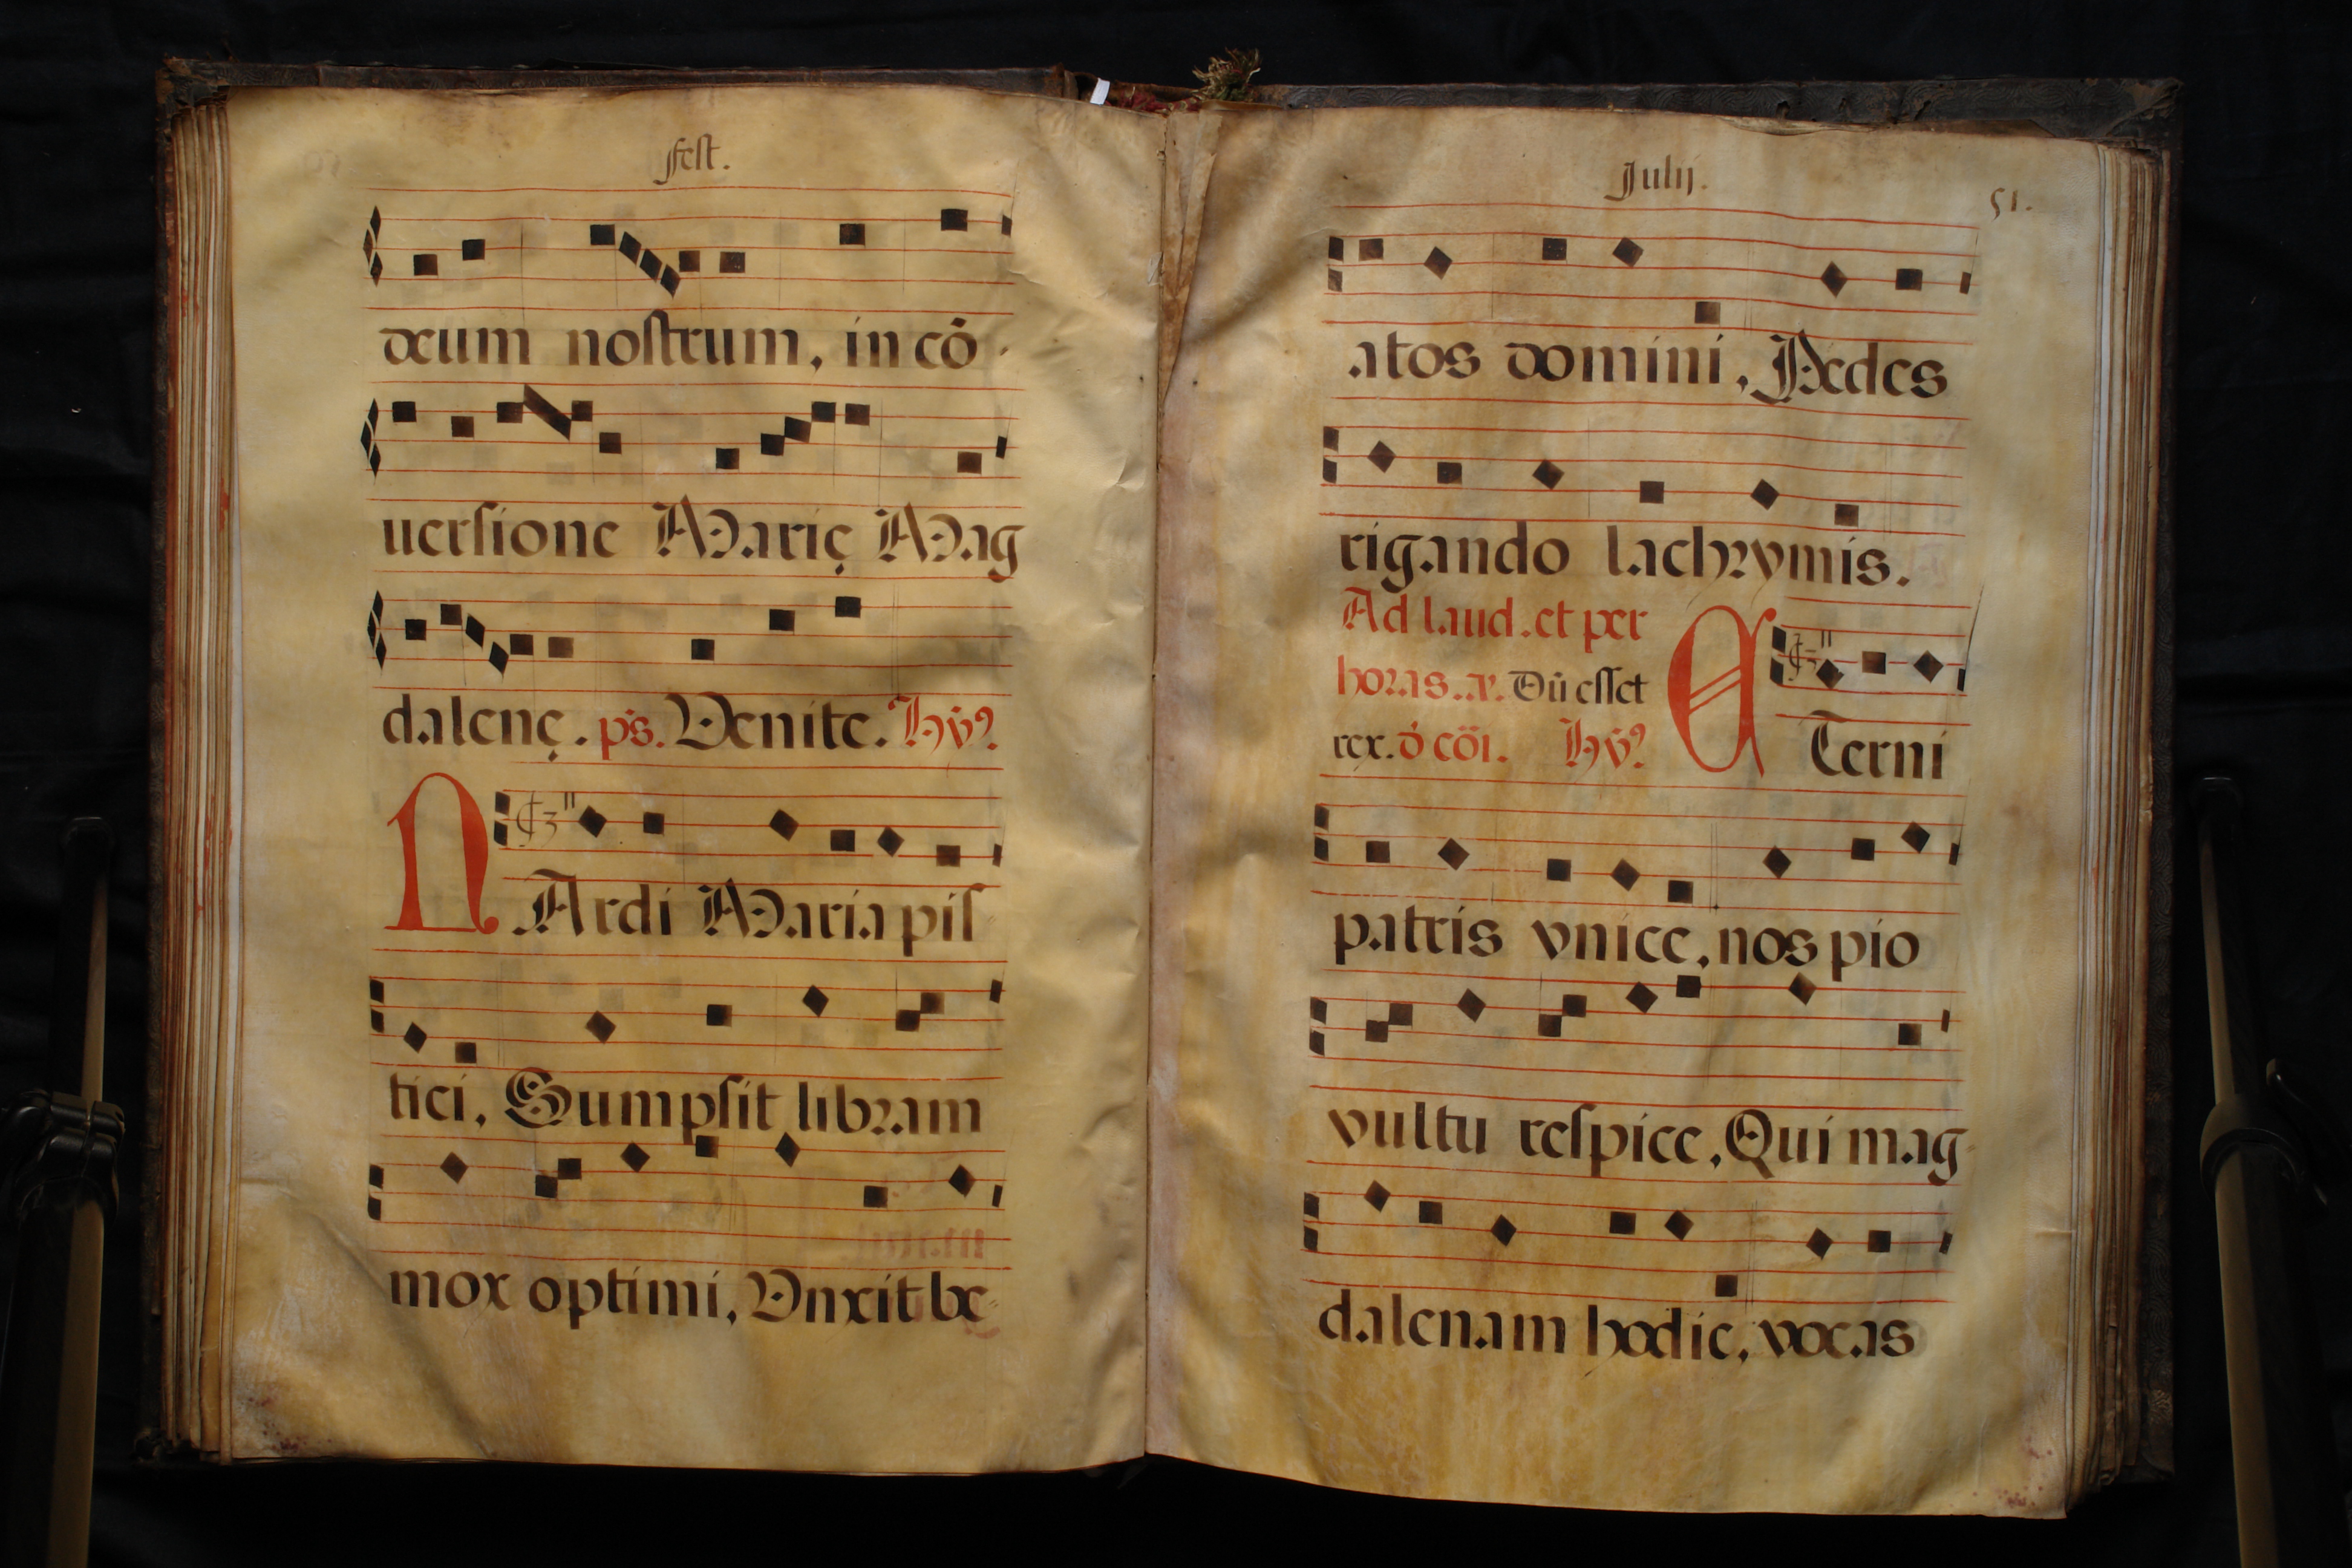 fest.
deum nostrum, in cō
uersione Marię Mag
dalenę. ps. Venite. Hỹ9.
NArdi Maria pis
tici, Sumpsit libram
mox optimi, Vnxit be
Julij.
51.
atos domini, Pedes
rigando lachrymis.
Ad laud. et per
horas. a. Dū esset
rex. ỏ cõi. Hỹ9.
ÆTerni
patris vnice, nos pio
vultu respice, Qui mag
dalenam hodie, vocas